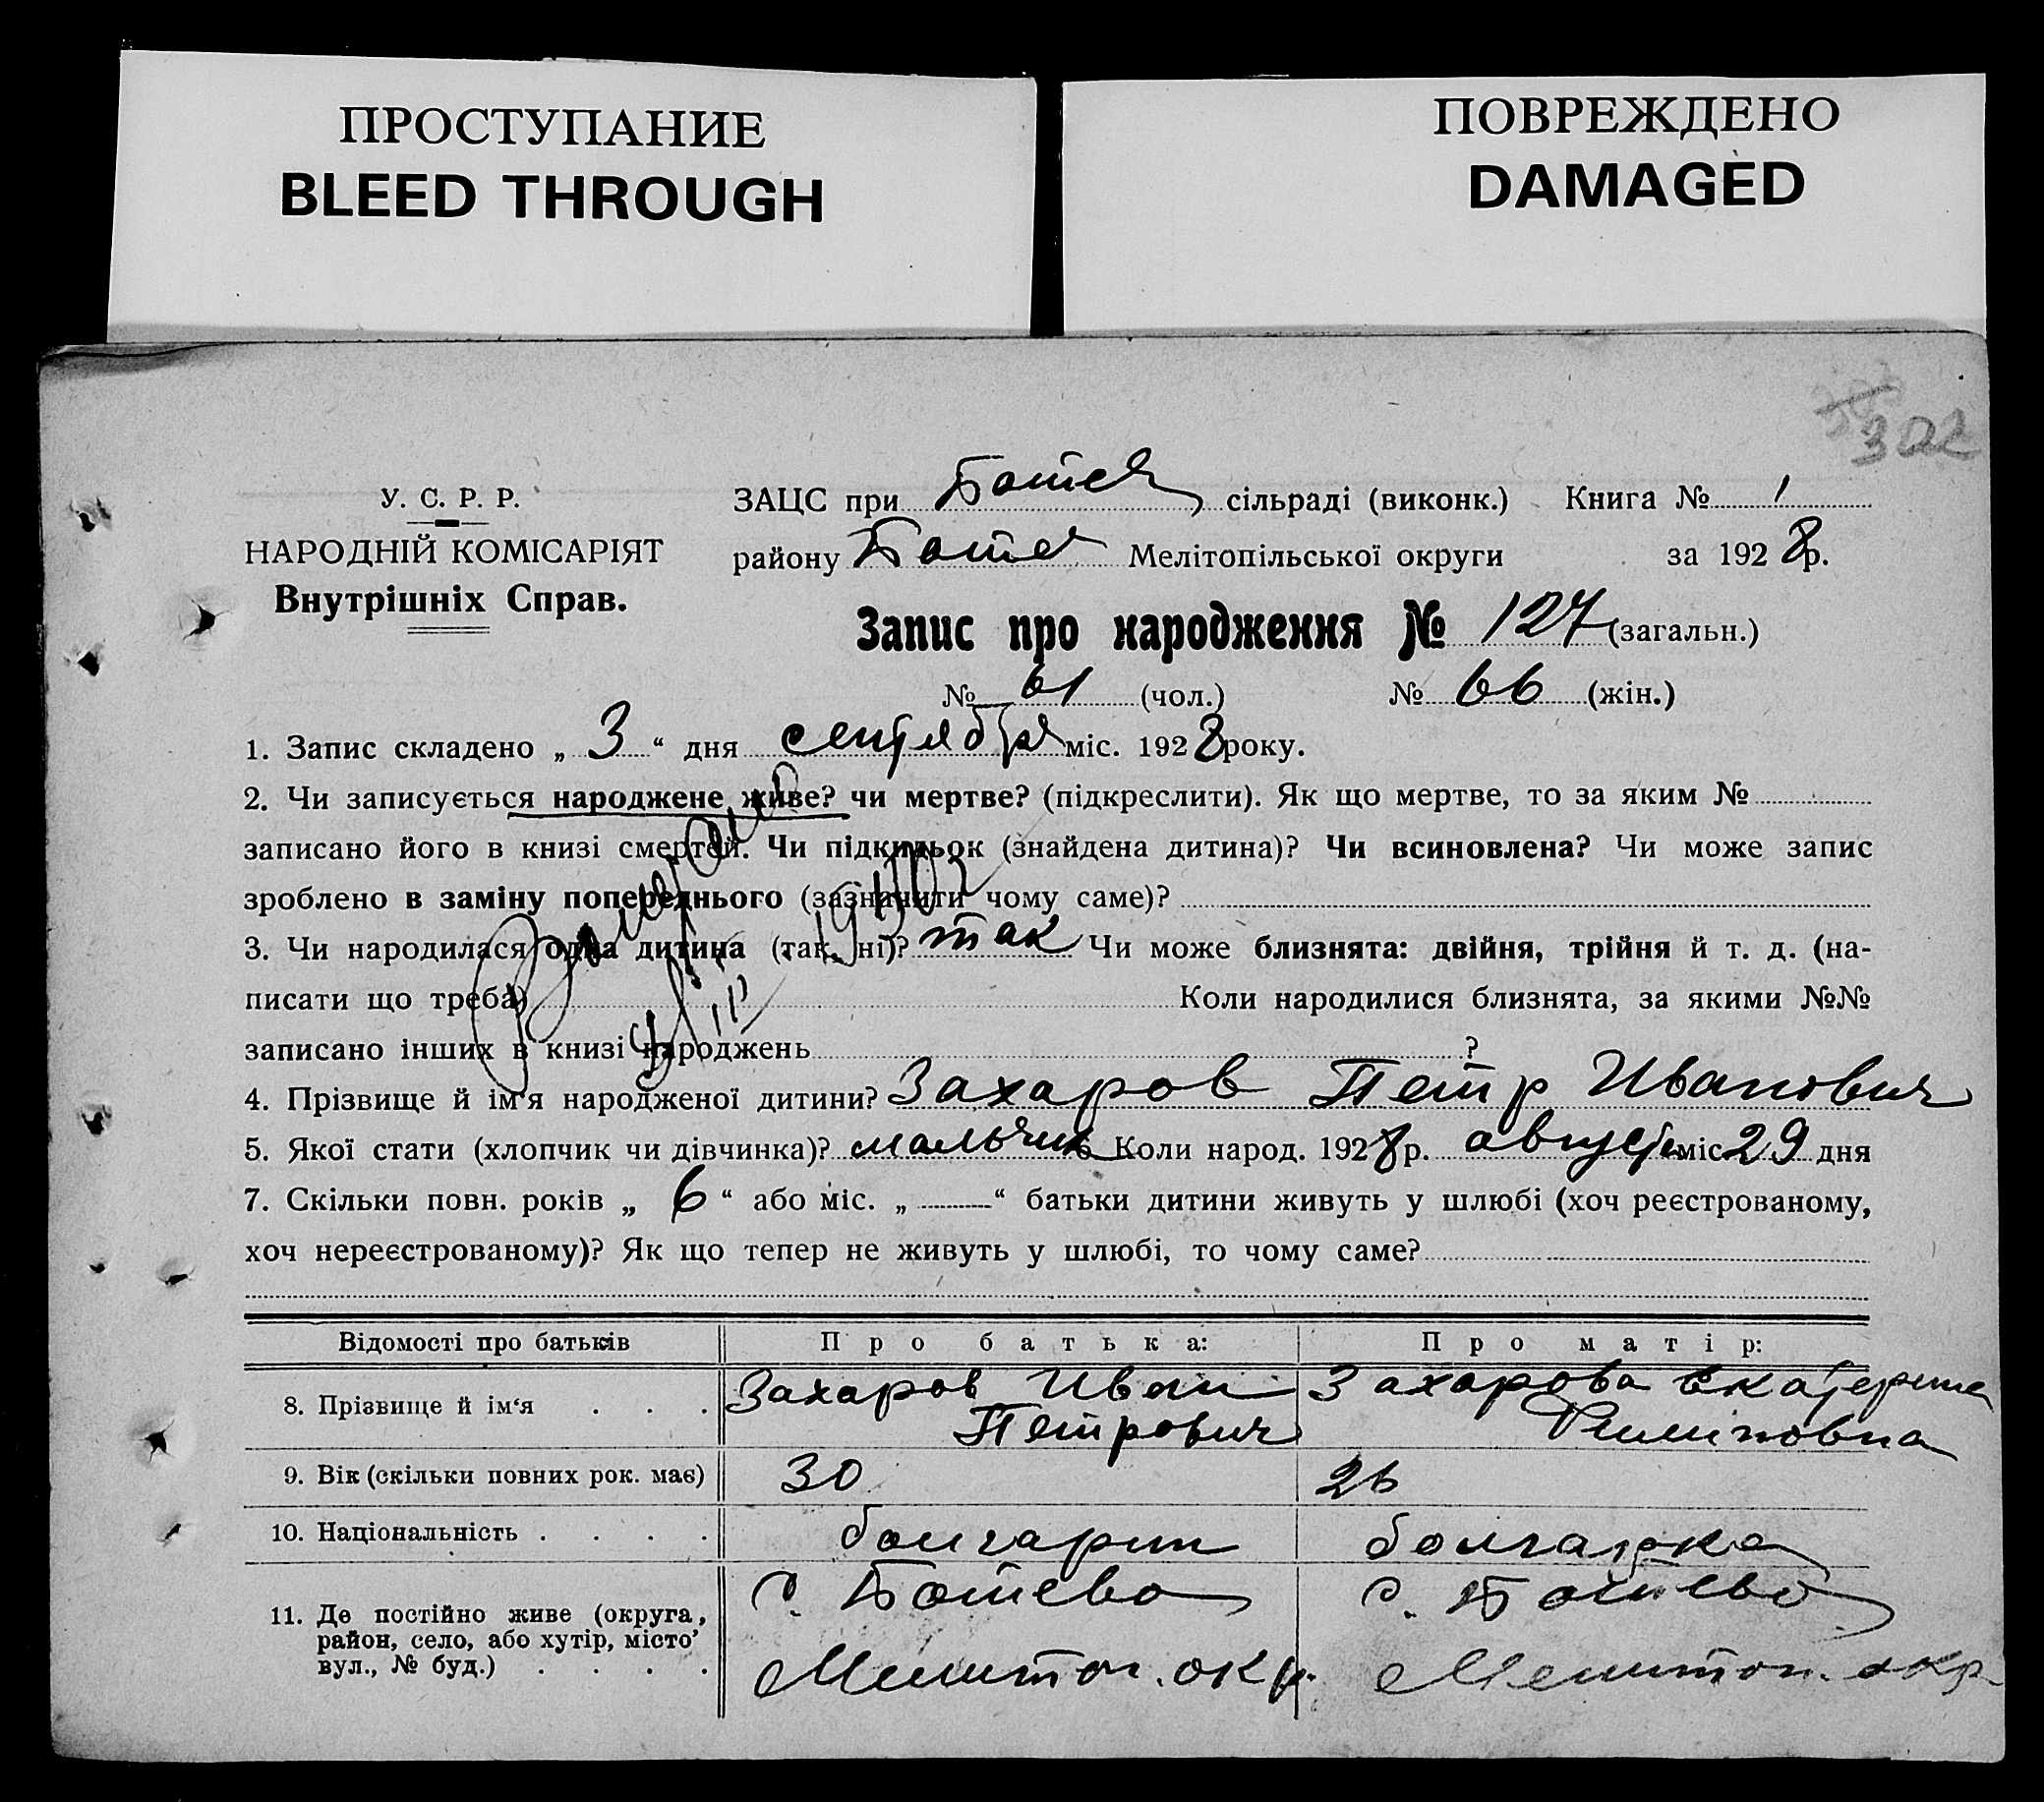 ПРОСТУПАНИЕ
BLEED THROUGH
ПОВРЕЖДЕНО
DAMAGED
302
У. С. Р. Р.
НАРОДНІЙ КОМІСАРІЯТ
Внутрішніх Справ.
ЗАЦС при Ботев сільраді (виконк.) Книга № 1
району Ботев Мелітопільської округи за 1928р.
Запис про народження № 127 (загальн.)
№ 61 (чол.) № 66 (жін.)
1. Запис складено „ 3 “ дня сентября міс. 1928 року.
2. Чи записується народжене живе? чи мертве? (підкреслити). Як що мертве, то за яким №
записано його в книзі смертей. Чи підкидьок (знайдена дитина)? Чи всиновлена? Чи може запис
зроблено в заміну попереднього (зазначити чому саме)?
3. Чи народилася одна дитина (так, ні)? так Чи може близнята: двійня, трійня й т. д. (на-
писати що треба) Коли народилися близнята, за якими №№
записано інших в книзі народжень ?
4. Прізвище й ім‘я народженої дитини? Захаров Петр Иванович
5. Якої стати (хлопчик чи дівчинка)? мальчик 6 Коли народ. 1928 р. августа міс. 29 дня
7. Скільки повн. років „ 6 “ або міс. „ “ батьки дитини живуть у шлюбі (хоч реєстрованому,
хоч нереєстрованому)? Як що тепер не живуть у шлюбі, то чому саме?
Відомості про батьків Про батька: Про матір:
8. Прізвище й ім‘я . . . Захаров Иван Захарова Екатерина
Петрович
9. Вік (скільки повних рок. має) 30 26
10. Національність . . . . болгарин болгарка
11. Де постійно живе (округа, с. Ботево с. Ботево
район, село, або хутір, місто’
вул., № буд.) . . . . Мелитоп. окр. Мелитоп. окр.